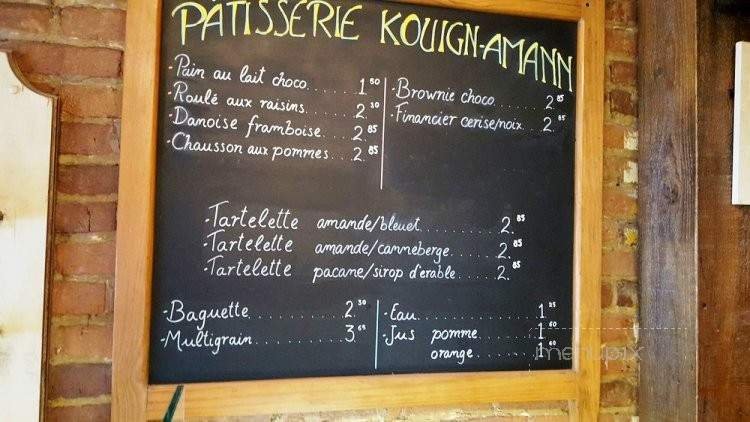 PÂTISSERIE KOUIGN-AMANN
-Pain au lait choco......1 50
-Roulé aux raisins......2 10
-Danoise framboise...2 85
-Chausson aux pommes...2 85
-Brownie choco.......2 85
-Financier cerise/noix..2 85
-Tartelette amande/bleuet..........2 85
-Tartelette amande/canneberge......2 85
-Tartelette pacane/sirop d'érable.....2 85
-Baguette..........2 30
-Multigrain.........3 65
-Eau.............1 25
-Jus pomme.......1 60
orange.........1 60
menupix